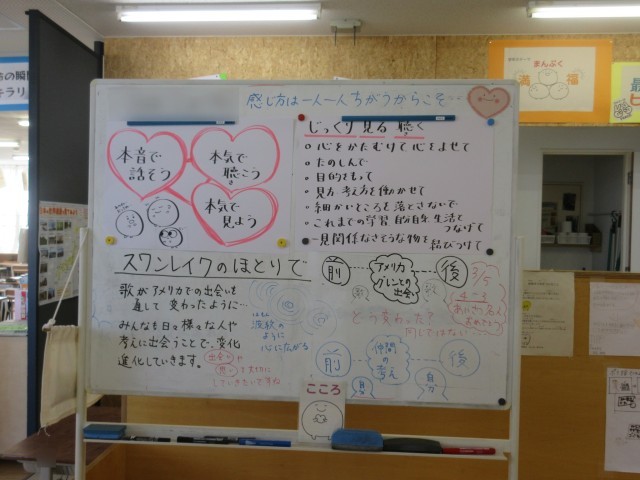 感じ方は一人一人ちがうからこそ…
本音で
話そう
本気で
聴こう
本気で
見よう
じっくり 見る 聴く
心をかたむけて 心をよせて
たのしんで
目的をもって
見方 考え方を働かせて
細かいところを落とさないで
これまでの学習 自分自身 生活と
つなげて
一見関係なさそうな物を
結びつけて
スワンレイクのほとりで
歌がアメリカでの出会いを
通して 変わったように…
みんなも日々様々な人や
考えに出会うことで、変化
進化していきます。
出会いや
想いを大切に
していきたいですね
波紋の
ように
心に広がる
前
アメリカ
グレンとの
出会い
後
どう変わった？
同じではない
3/5
4-3
あいさつ名人
おめでとう
前
仲間の
考え
後
こころ
まんぷく
満
福